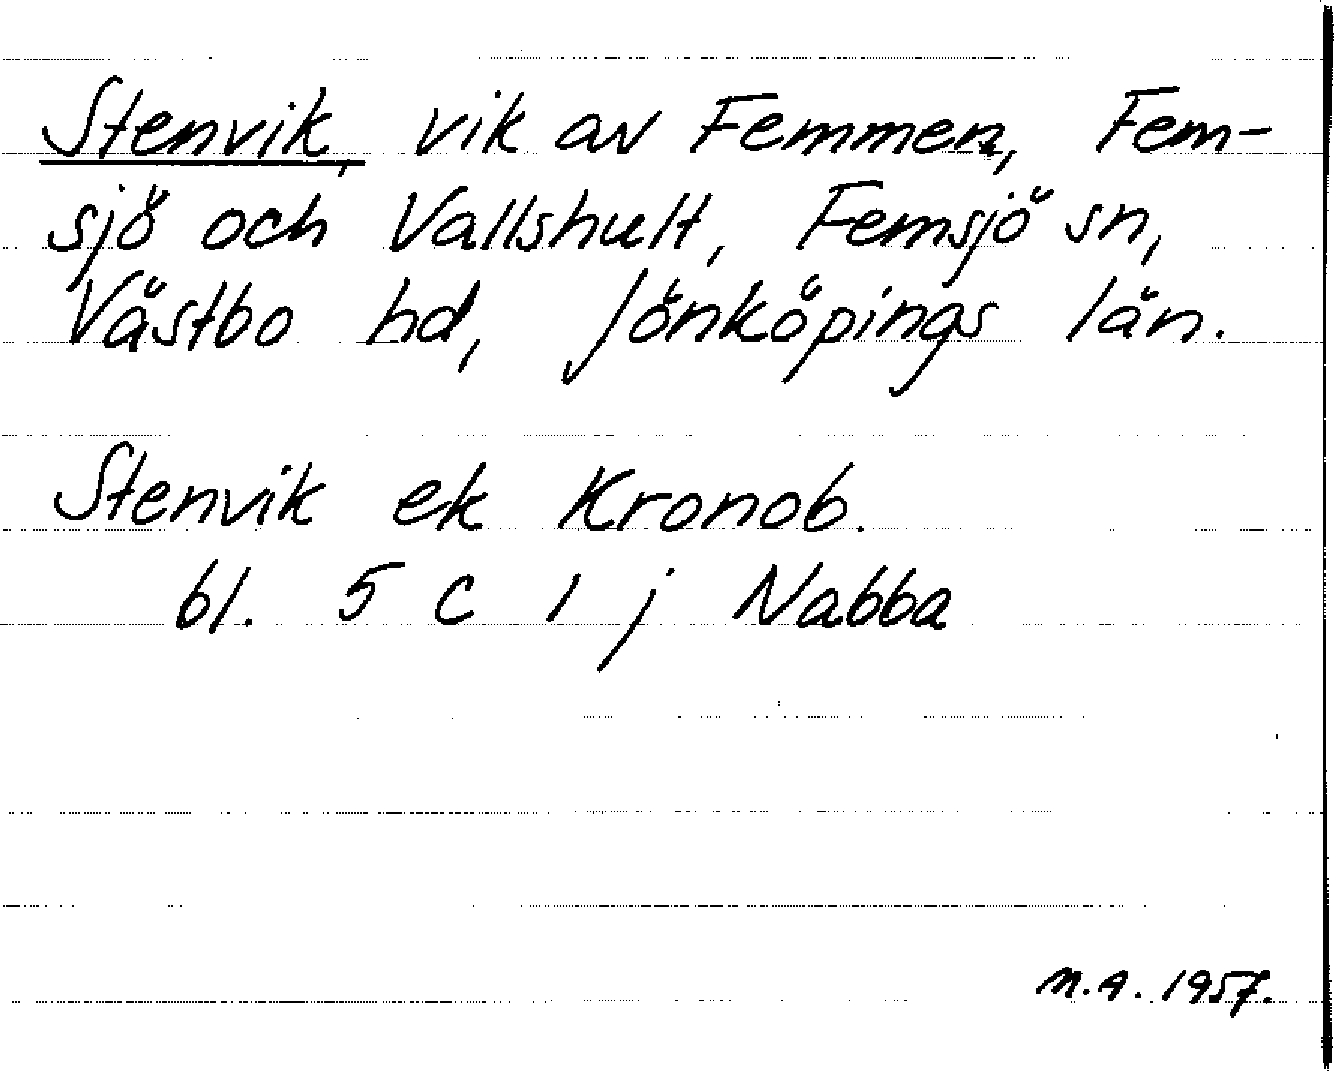 Stenvik, vik av Femmen, Fem-
sjö och Vallshult, Femsjö sn,
Västbo hd, Jönköpings län.
Stenvik ek Kronob.
bl. 5 C 1 j Nabba
M.A. 1957.